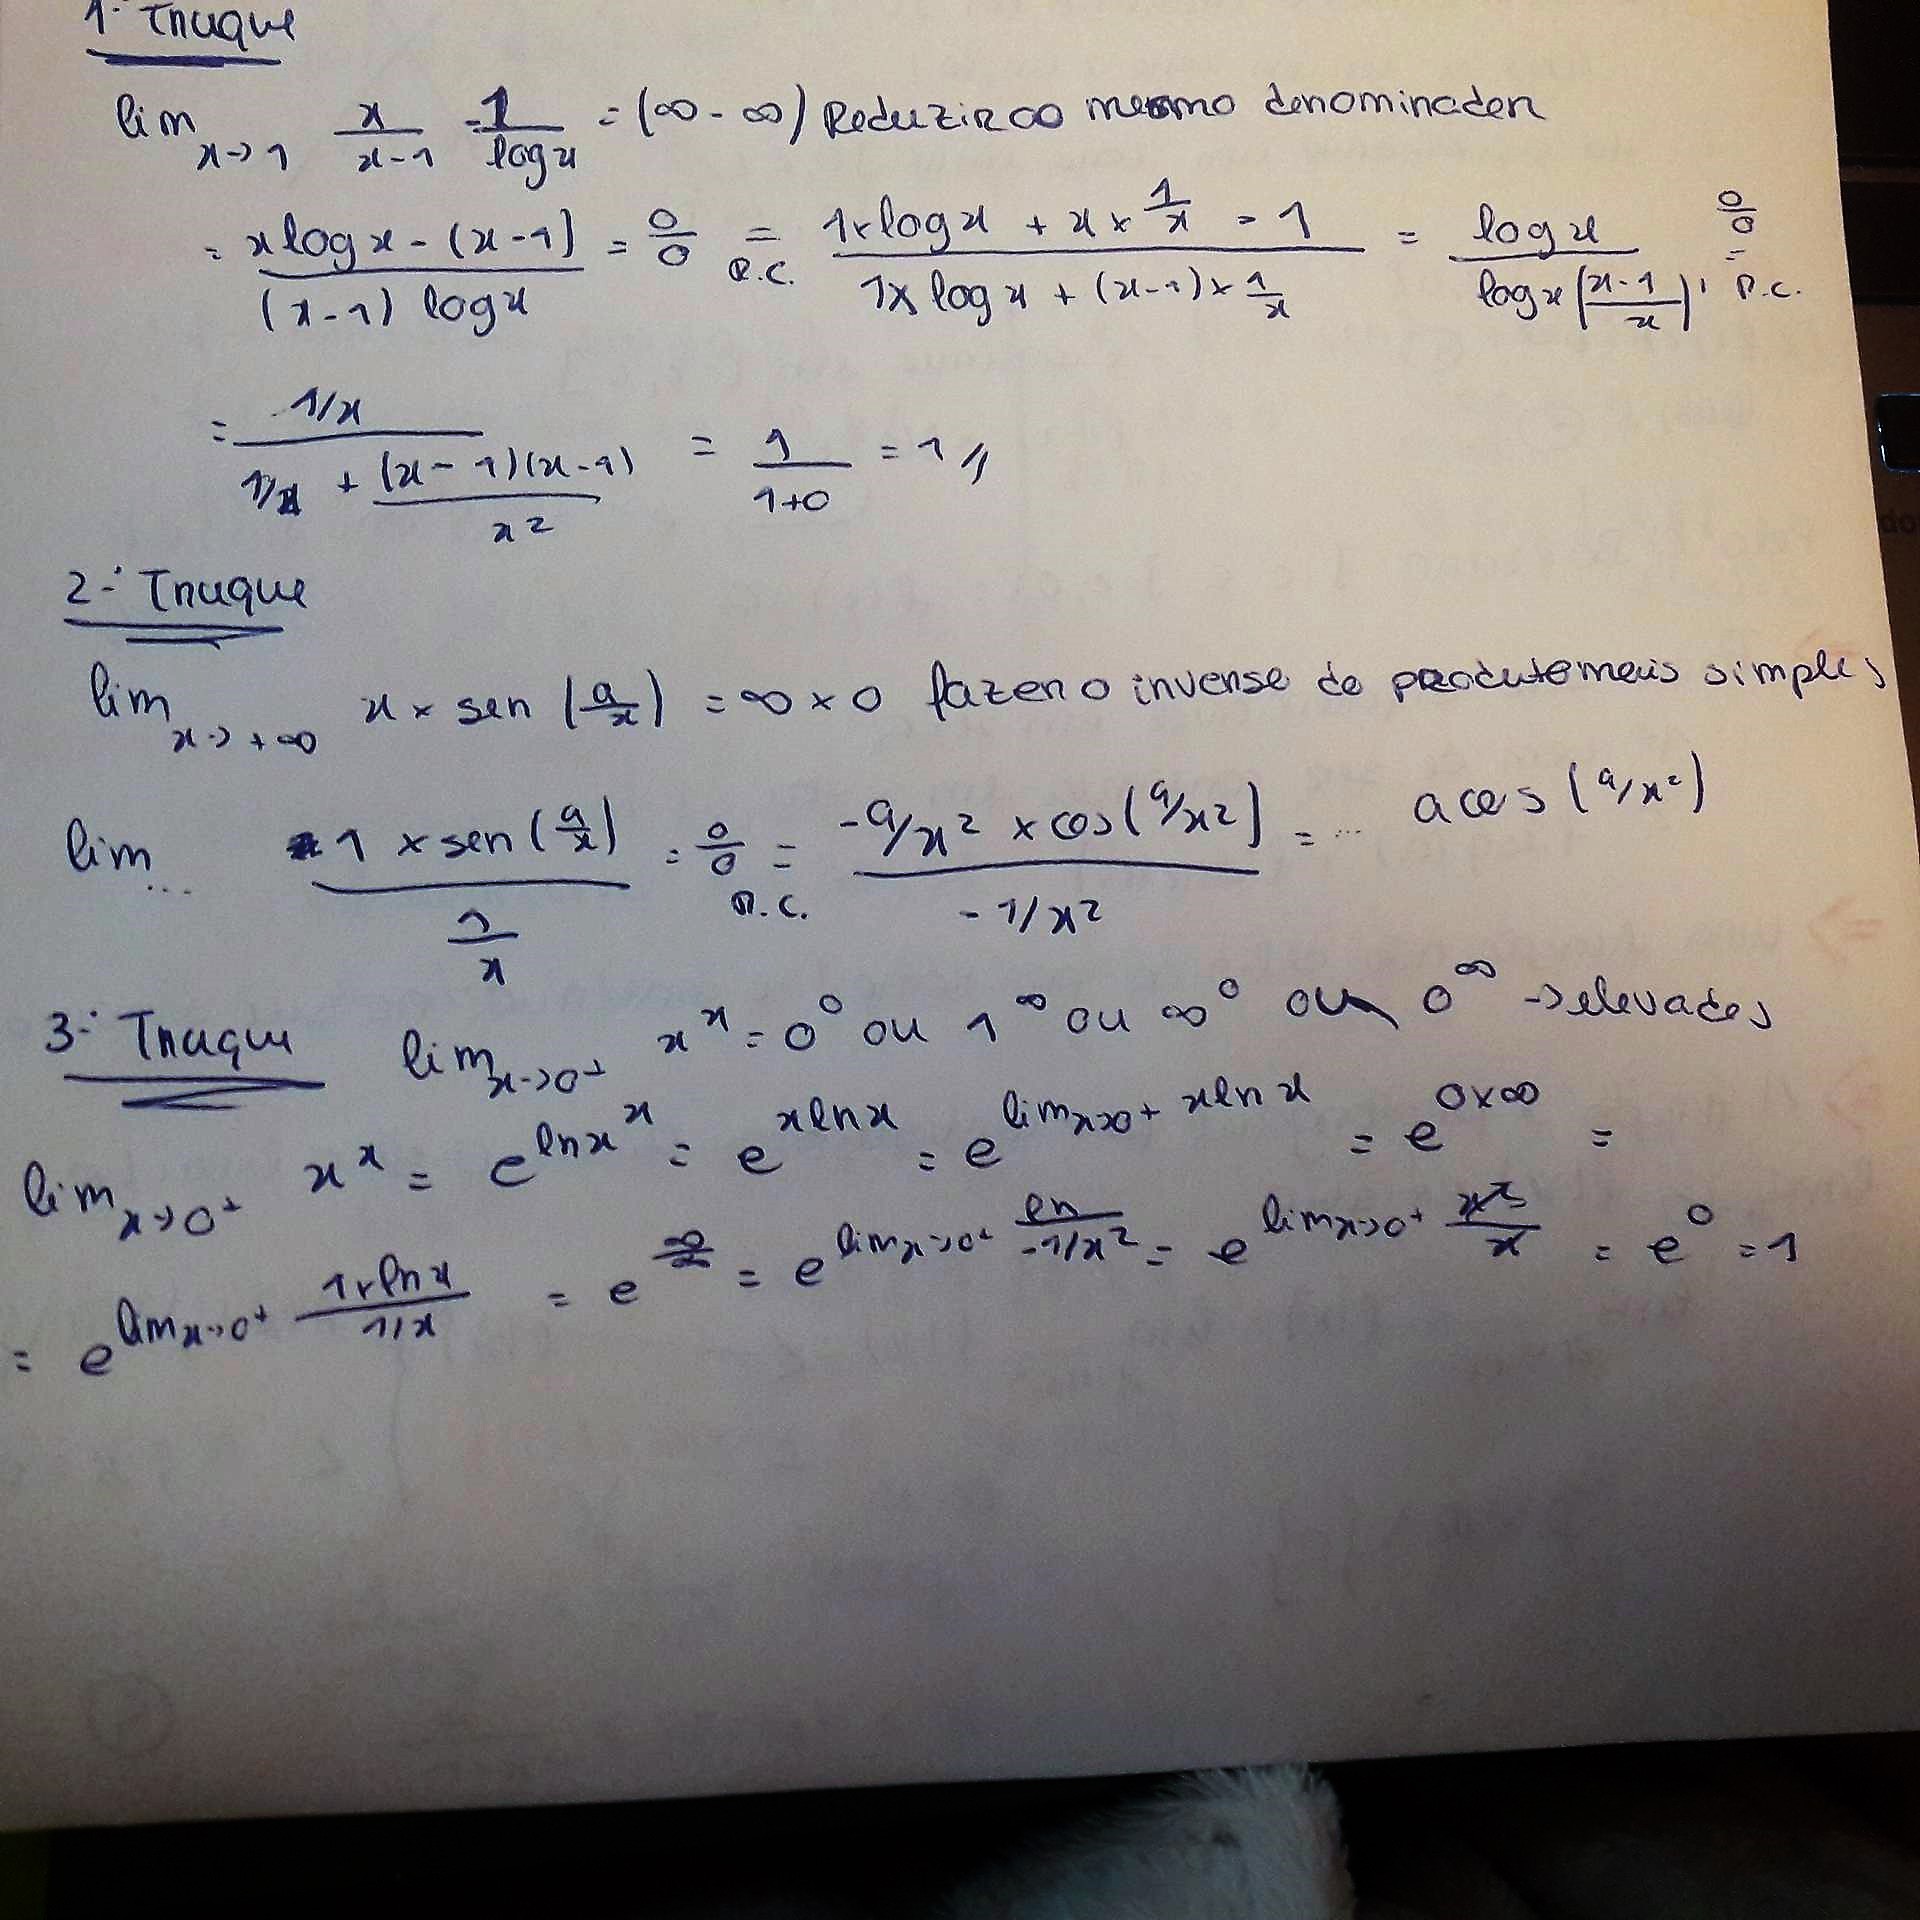 1.º Truque
lim x→1 x/(x-1) - 1/log x = (∞ - ∞) Reduzir ao mesmo denominador
= (x log x - (x-1))/((x-1) log x) = 0/0 =R.C. (1× log x + x × 1/x - 1)/(1× log x + (x-1) × 1/x) = log x/(log x ((x-1)/x)) 0/0 =R.C.
= (1/x)/(1/x + (x-1)(x-1)/x²) = 1/(1+0) = 1 //
2.º Truque
lim x→+∞ x × sen (a/x) = ∞ × 0 fazer o inverso do produto mais simples
lim ... (1 × sen (a/x))/(1/x) = 0/0 =R.C. (-a/x² × cos (a/x²))/(-1/x²) = ... a cos (a/x²)
3.º Truque lim x→0+ x^x = 0^0 ou 1^∞ ou ∞^0 ou 0^∞ → elevados
lim x→0+ x^x = e^(ln x^x) = e^(x ln x) = e^(lim x→0+ x ln x) = e^(0×∞) =
= e^(lim x→0+ (1× ln x)/(1/x)) = e^(∞/∞) = e^(lim x→0+ ln/(-1/x²)) = e^(lim x→0+ x²/x) = e^0 = 1